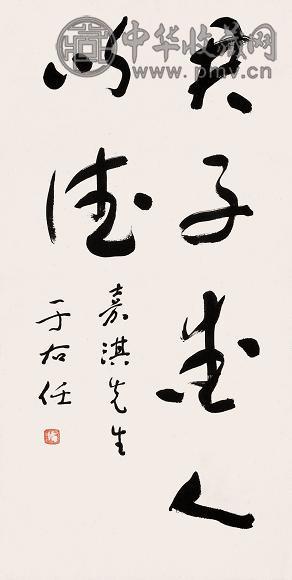 君子爱人
以德
嘉淇先生
于右任
中华收藏网
www.pmv.cn